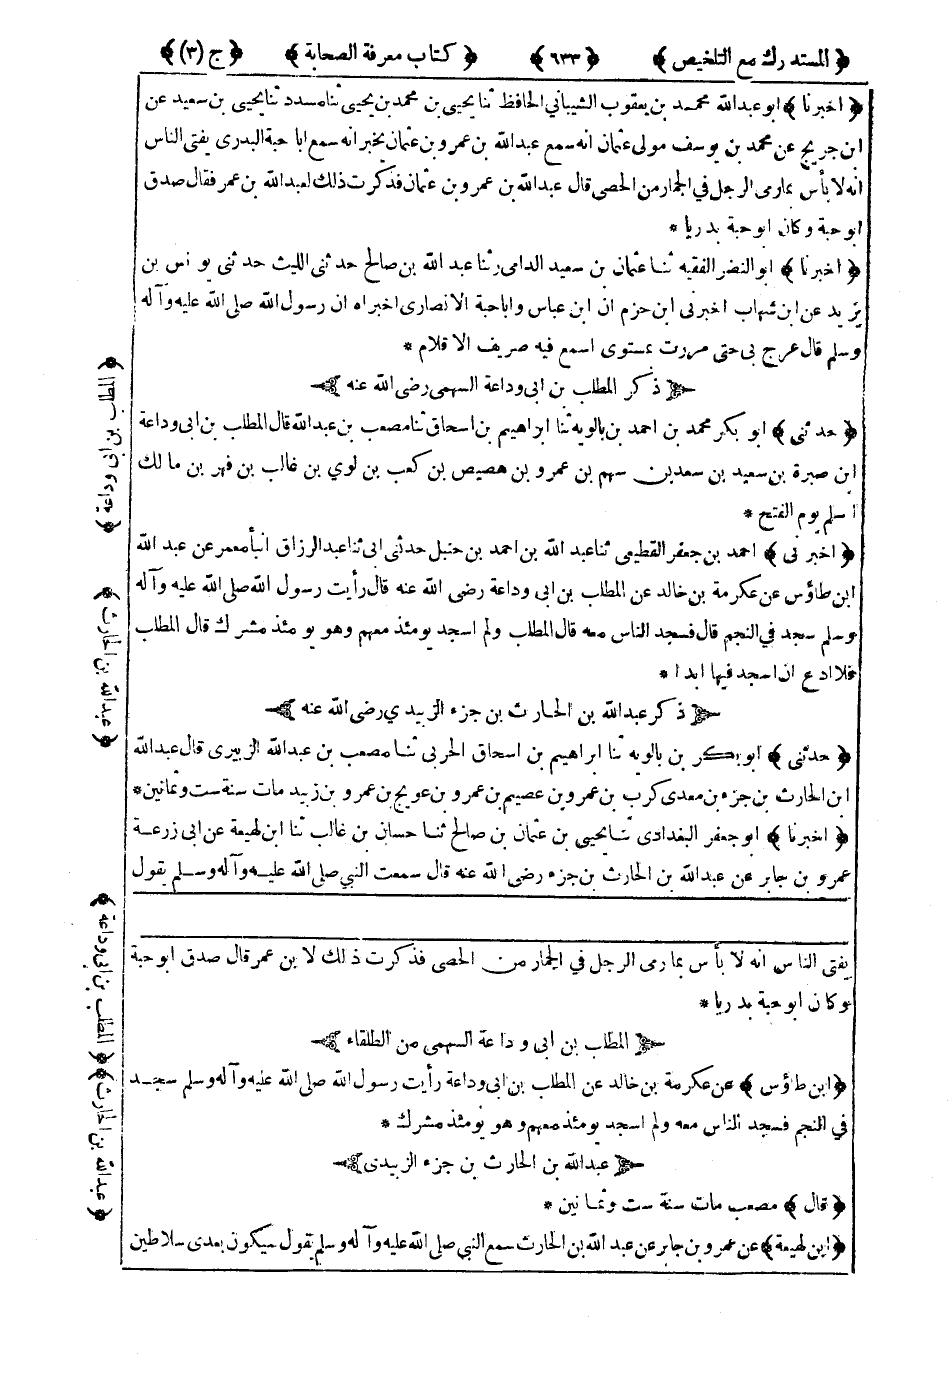 ﴿ المستدرك مع التلخيص ﴾ ﴿ ٦٣٣ ﴾ ﴿ كتاب معرفة الصحابة ﴾ ﴿ ج (٣) ﴾
﴿ اخبرنا ﴾ ابو عبدالله محمد بن يعقوب الشيباني الحافظ ثنا يحيى بن محمد بن يحيى ثنا مسدد ثنا يحيى بن سعيد عن
ابن جريج عن محمد بن يوسف مولى عثمان انه سمع عبدالله بن عمرو بن عثمان يخبر انه سمع ابا حبة البدرى يفتى الناس
انه لا بأس بما رمى الرجل في الجمار من الحصى قال عبدالله بن عمرو بن عثمان فذكرت ذلك لعبدالله بن عمر فقال صدق
ابو حبة وكان ابو حبة بدريا *
﴿ اخبرنا ﴾ ابو النضر الفقيه ثنا عثمان بن سعيد الدامى ثنا عبد الله بن صالح حدثنى الليث حدثنى يونس بن
يزيد عن ابن شهاب اخبرنى ابن حزم ان ابن عباس واباحبة الانصارى اخبراه ان رسول الله صلى الله عليه وآله
وسلم قال عرج بى حتى مررت بمستوى اسمع فيه صريف الاقلام *
ذكر المطلب بن ابى وداعة السهمى رضى الله عنه
﴿ حدثنى ﴾ ابو بكر محمد بن احمد بن بالويه ثنا ابراهيم بن اسحاق ثنا مصعب بن عبدالله قال المطلب بن ابى وداعة
ابن صبرة بن سعيد بن سعد بن سهم بن عمرو بن هصيص بن كعب بن لوي بن غالب بن فهر بن مالك
اسلم يوم الفتح *
﴿ اخبرنى ﴾ احمد بن جعفر القطيعى ثنا عبد الله بن احمد بن حنبل حدثنى ابى ثنا عبد الرزاق انبأ معمر عن عبد الله
ابن طاؤس عن عكرمة بن خالد عن المطلب بن ابى وداعة رضى الله عنه قال رأيت رسول الله صلى الله عليه وآله
وسلم سجد في النجم قال فسجد الناس معه قال المطلب ولم اسجد يومئذ معهم وهو يومئذ مشرك قال المطلب
فلا ادع ان اسجد فيها ابدا *
ذكر عبدالله بن الحارث بن جزء الزبيدي رضى الله عنه
﴿ حدثنى ﴾ ابو بكر بن بالويه ثنا ابراهيم بن اسحاق الحربى ثنا مصعب بن عبدالله الزبيرى قال عبدالله
ابن الحارث بن جزء بن معدى كرب بن عمرو بن عصيم بن عمرو بن عويج بن عمرو بن زبيد مات سنة ست وثمانين *
﴿ اخبرنا ﴾ ابو جعفر البغدادى ثنا يحيى بن عثمان بن صالح ثنا حسان بن غالب ثنا ابن لهيعة عن ابى زرعة
عمرو بن جابر عن عبدالله بن الحارث بن جزء رضى الله عنه قال سمعت النبي صلى الله عليه وآله وسلم يقول
يفتى الناس انه لا بأس بما رمى الرجل في الجمار من الحصى فذكرت ذلك لابن عمر قال صدق ابو حبة
وكان ابو حبة بدريا *
المطلب بن ابى وداعة السهمى من الطلقاء
﴿ ابن طاؤس ﴾ عن عكرمة بن خالد عن المطلب بن ابى وداعة رأيت رسول الله صلى الله عليه وآله وسلم سجد
في النجم فسجد الناس معه ولم اسجد يومئذ معهم وهو يومئذ مشرك *
عبدالله بن الحارث بن جزء الزبيدى
﴿ قال ﴾ مصعب مات سنة ست وثمانين *
﴿ ابن لهيعة ﴾ عن عمرو بن جابر عن عبد الله بن الحارث سمع النبي صلى الله عليه وآله وسلم يقول سيكون بعدى سلاطين
﴿ المطلب بن ابى وداعة ﴾
﴿ عبدالله بن الحارث ﴾
﴿ المطلب بن ابى وداعة ﴾
﴿ عبدالله بن الحارث ﴾